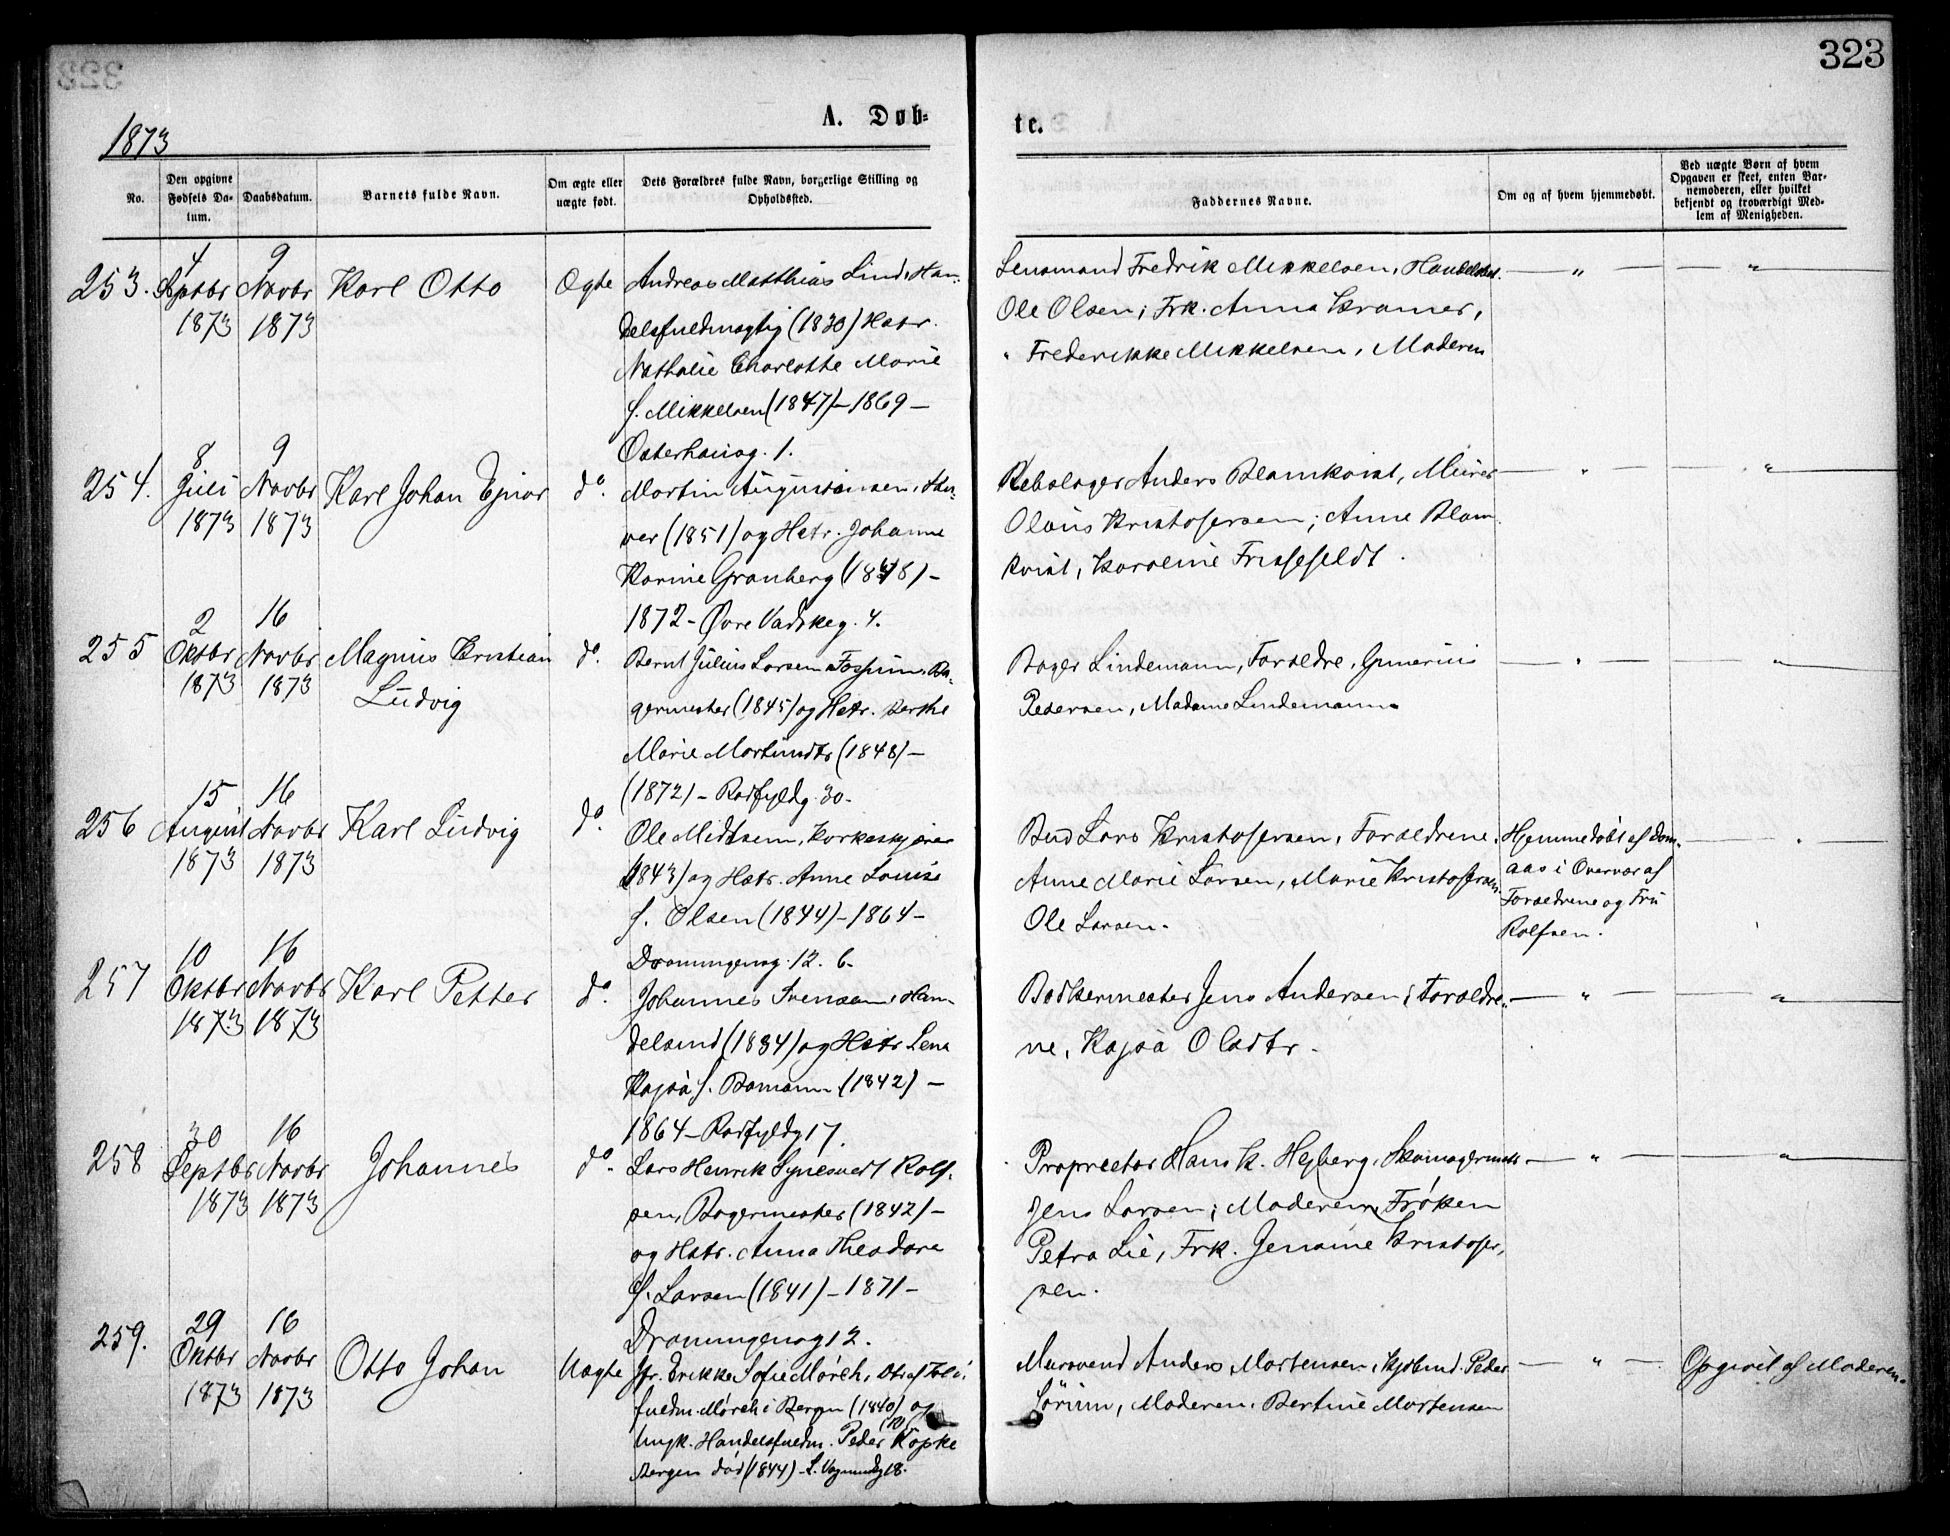 323
A. Døb=
te.
1873
No.
Den opgivne Fødsels Datum.
Daabsdatum.
Barnets fulde Navn.
Om ægte eller uægte født.
Dets Forældres fulde Navn, borgerlige Stilling og Opholdssted.
Faddernes Navne.
Om og af hvem hjemmedøbt.
Ved uægte Børn af hvem Opgaven er skeet, enten Barnemoderen, eller hvilket bekjendt og troværdigt Medlem af Menigheden.
253. 4 Septbr 1873 9 Novbr 1873 Karl Otto Ægte
Andreas Matthias Lind, Han-
delsfuldmægtig (1830) Hstr.
Nathalie Charlotte Marie
f. Mikkelsen (1847) – 1869 –
Osterhausg. 1.
Lensmand Fredrik Mikkelsen, Handelsbet.
Ole Olsen; Frk. Anna Kramer,
" Frederikke Mikkelsen, Moderen
— " — — " —
254. 8 Juli 1873 9 Novbr 1873 Karl Johan Ejnar do.
Martin Augustinsen, Skri-
ver (1851) og Hstr. Johanne
Karine Granberg (1848) –
1872 – Øvre Vadskeg. 4.
Rebslager Anders Blomkvist, Murer
Olaus Kristofersen; Anne Blom-
kvist, Karoline Frisfeldt.
— " — — " —
255 2 Oktbr 1873 16 Novbr 1873 Magnus Kristian Ludvig do.
Bernt Julius Larsen Fossum, Ba-
germester (1845) og Hstr. Berthe
Marie Martinsdtr (1848) –
(1872) – Rødfyldg. 30.
Bager Lindemann, Forældre, Gunerius
Pedersen, Madame Lindemann
— " — — " —
256 15 August 1873 16 Novbr 1873 Karl Ludvig do.
Ole Midtsem, Korkeskjærer
(1843) og Hstr. Anne Louise
f. Olsen (1844) – 1864 –
Dronningensg. 12. 6.
Bud Lars Kristofersen, Forældrene,
Anne Marie Larsen, Marie Kristofersen
Ole Larsen.
Hjemmedøbt af Dom-
aas i Overvær af
Forældrene og Fru
Rolfsen.
257 10 Oktbr 1873 16 Novbr 1873 Karl Petter do.
Johannes Svensen, Han-
delsmd (1834) og Hstr Lena
Kajsa f. Bomann (1842) –
1864 – Rødfyldg 17.
Bødkermester Jens Andersen; Forældre-
ne, Kajsa Olsdtr.
— " — — " —
258 30 Septbr 1873 16 Novbr 1873 Johannes do.
Lars Henrik Synesvedt Rolf-
sen, Bagermester (1842) –
og Hstr. Anna Theodora
f. Larsen (1841) – 1871 –
Dronningensg 12.
Proprietær Hans K. Hejberg, Skomagermester
Jens Larsen; Moderen, Frøken
Petra Lie, Frk. Jensine Kristofer-
sen.
— " — — " —
259. 29 Oktbr 1873 16 Novbr 1873 Otto Johan Uægte
Jfr. Erikke Sofie Mørch, Dtr af
fuldm. Mørch i Bergen (1840) og
Ungk. Handelsfuldm. Peder Køpke
Bergen død (1844) –
Mursvend Anders Mortensen, Kjøbmd. Peder
Sørum, Moderen, Bertine Mortensen
— " —
Opgivet af Moderen.